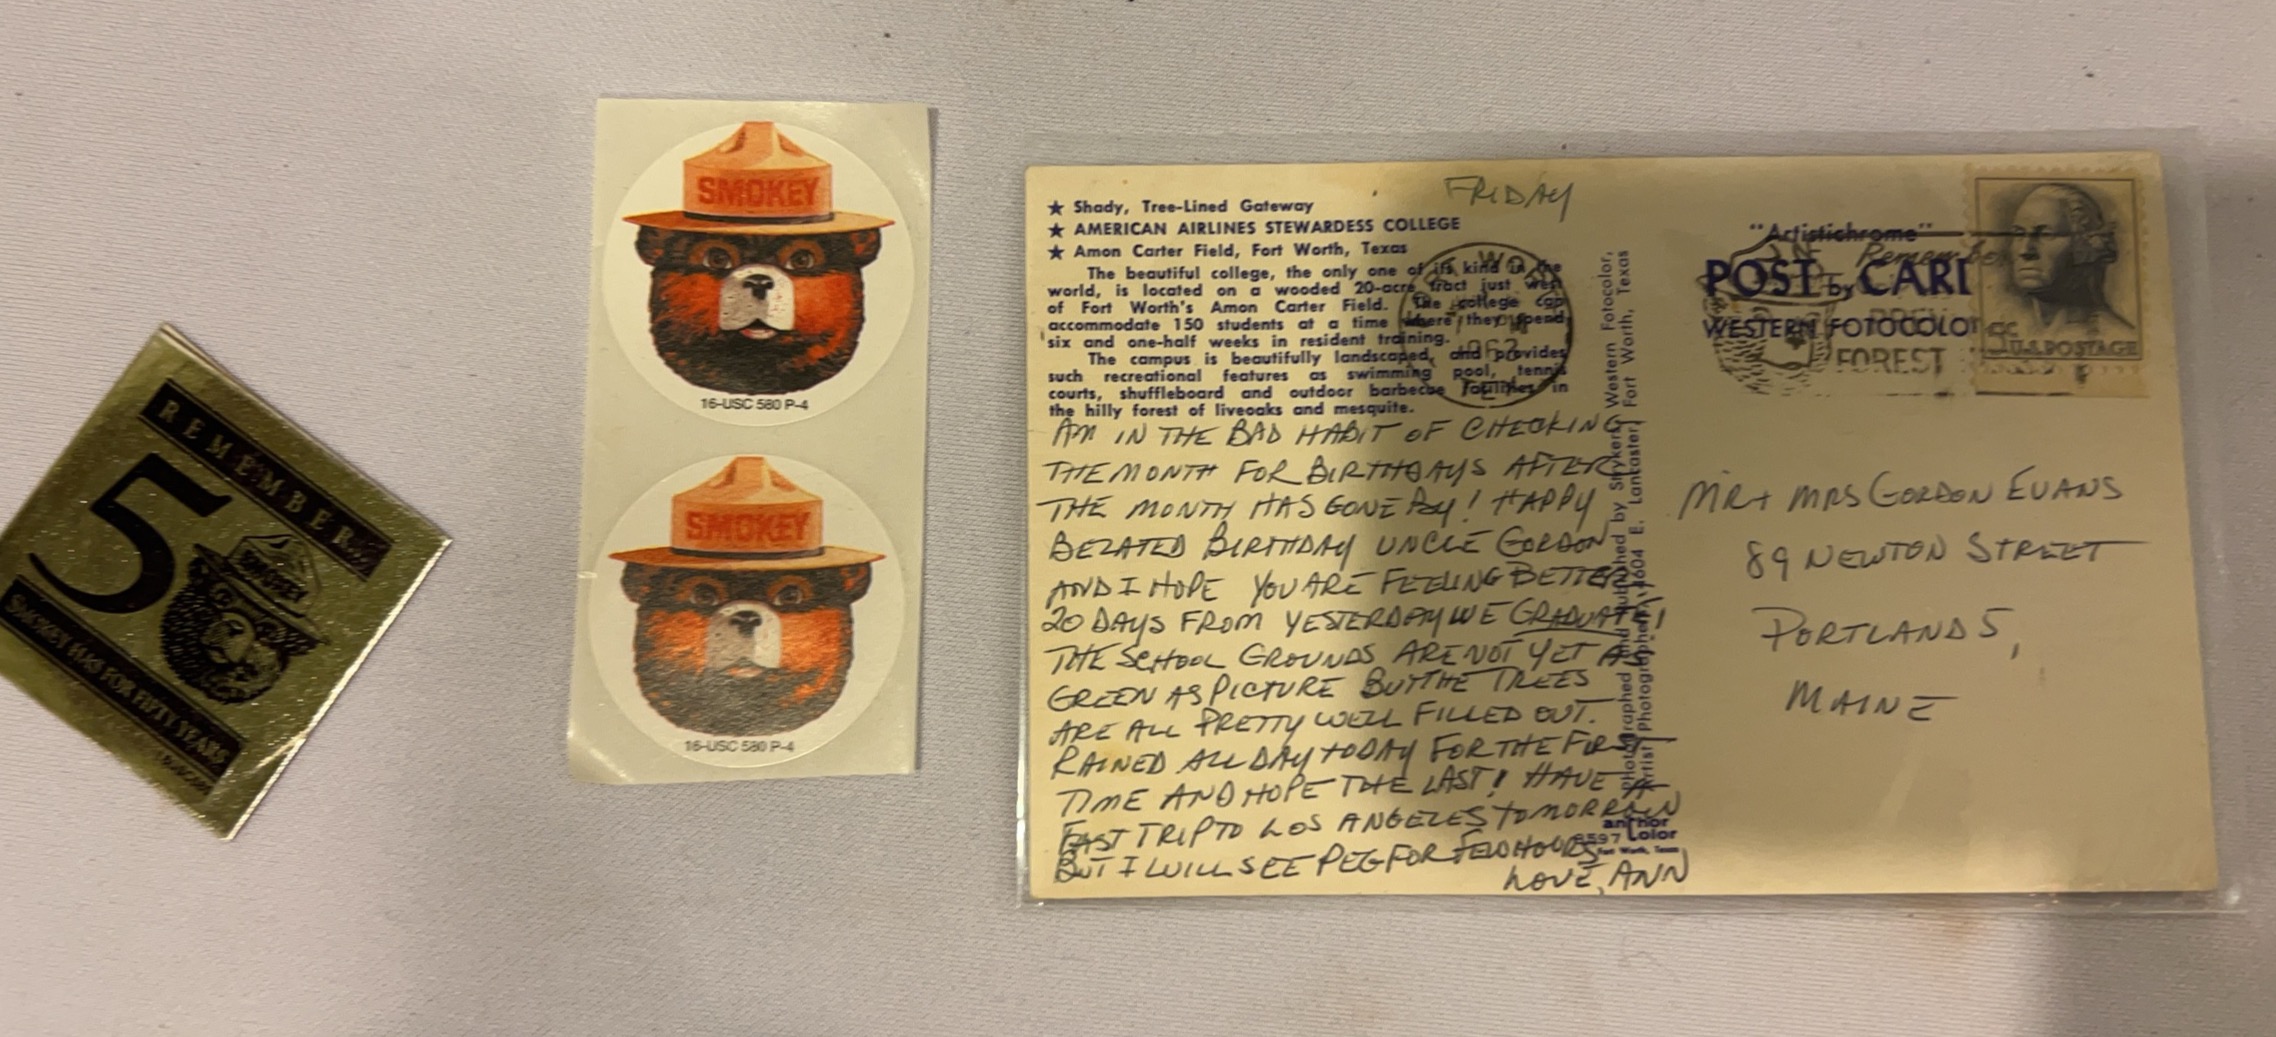 REMEMBER.
50
SMOKEY
SMOKEY HAS FOR FIFTY YEARS
SMOKEY
16-USC 580 P-4
SMOKEY
16-USC 580 P-4
FRIDAY
★ Shady, Tree-Lined Gateway
★ AMERICAN AIRLINES STEWARDESS COLLEGE
★ Amon Carter Field, Fort Worth, Texas
The beautiful college, the only one of its kind in the
world, is located on a wooded 20-acre tract just west
of Fort Worth's Amon Carter Field. The college can
accommodate 150 students at a time where they spend
six and one-half weeks in resident training.
The campus is beautifully landscaped, and provides
such recreational features as swimming pool, tennis
courts, shuffleboard and outdoor barbecue facilities in
the hilly forest of liveoaks and mesquite.
AM IN THE BAD HABIT OF CHECKING
THE MONTH FOR BIRTHDAYS AFTER
THE MONTH HAS GONE BY! HAPPY
BELATED BIRTHDAY UNCLE GORDON
AND I HOPE YOU ARE FEELING BETTER
20 DAYS FROM YESTERDAY WE GRADUATE!
THE SCHOOL GROUNDS ARE NOT YET AS
GREEN AS PICTURE BUT THE TREES
ARE ALL PRETTY WELL FILLED OUT.
RAINED ALL DAY TODAY FOR THE FIRST
TIME AND HOPE THE LAST! HAVE A
FAST TRIP TO LOS ANGELES TOMORROW
BUT I WILL SEE PEG FOR FEW HOURS
LOVE, ANN
Photographed and Published by Stryker's Western Fotocolor,
Artist Photographers, 4604 E. Lancaster, Fort Worth, Texas
Color
Fort Worth, Texas
"Artistichrome"
POST CARD
by
WESTERN FOTOCOLOR
Remember
FOREST
5c
U.S. POSTAGE
MR + MRS GORDON EVANS
89 NEWTON STREET
PORTLAND 5,
MAINE